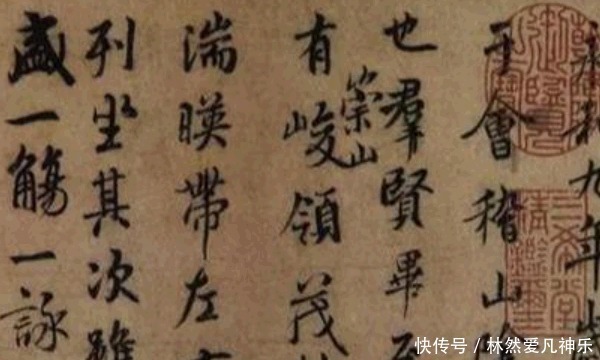 永和九年歲
于會稽山陰
也羣賢畢至
有崇山峻領茂
湍暎帶左右
列坐其次雖
盛一觴一詠
三希堂
精鑑璽
快传号／林然爱凡神乐